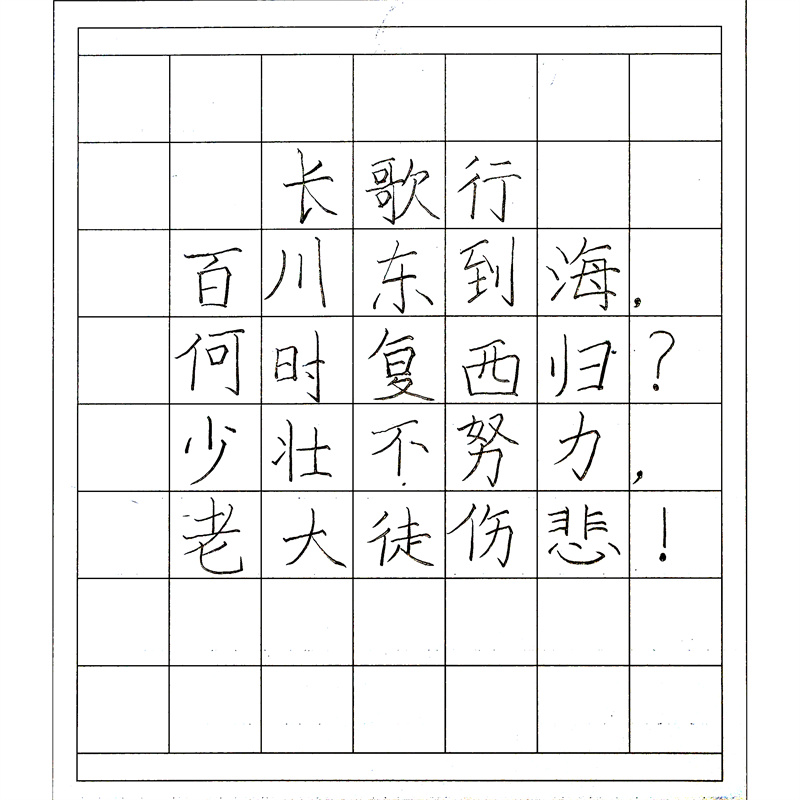 长歌行
百川东到海，
何时复西归？
少壮不努力，
老大徒伤悲！